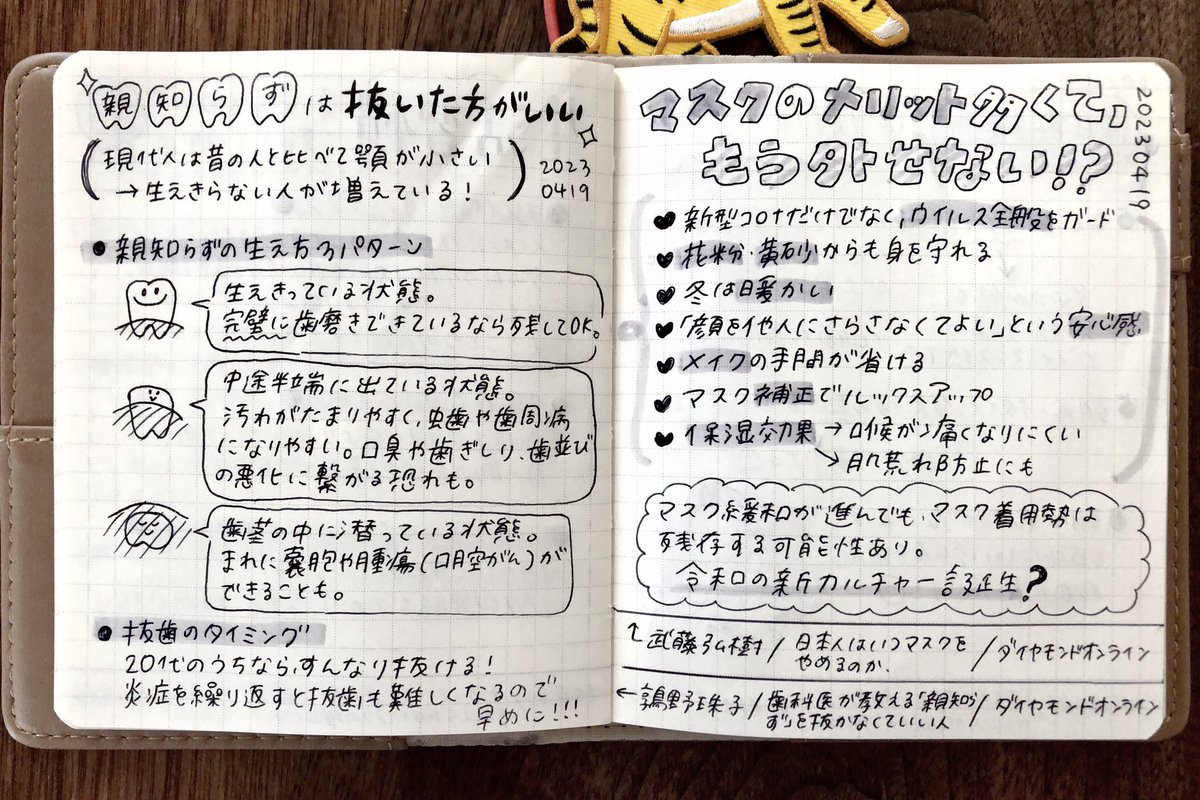 親知らずは抜いた方がいい
(現代人は昔の人と比べて顎が小さい
→生えきらない人が増えている!)
2023
0419
●親知らずの生え方3パターン
生えきっている状態。
完璧に歯磨きできているなら残してOK。
中途半端に出ている状態。
汚れがたまりやすく、虫歯や歯周病
になりやすい。口臭や歯ぎしり、歯並び
の悪化に繋がる恐れも。
歯茎の中に潜っている状態。
まれに嚢胞や腫瘍(口腔がん)が
できることも。
●抜歯のタイミング
20代のうちなら、すんなり抜ける!
炎症を繰り返すと抜歯も難しくなるので
早めに!!!
マスクのメリット多くて、
もう外せない!?
20230419
♥新型コロナだけでなく、ウイルス全般をガード
♥花粉・黄砂からも身を守れる
♥冬は暖かい
♥「顔を他人にさらさなくてよい」という安心感
♥メイクの手間が省ける
♥マスク補正でルックスアップ
♥保湿効果→喉が痛くなりにくい
→肌荒れ防止にも
マスク緩和が進んでも、マスク着用勢は
残存する可能性あり。
令和の新カルチャー誕生?
↑武藤弘樹/日本人はいつマスクを
やめるのか、/ダイヤモンドオンライン
←鶴野珠子/歯科医が教える「親知ら
ず」を抜かなくていい人/ダイヤモンドオンライン